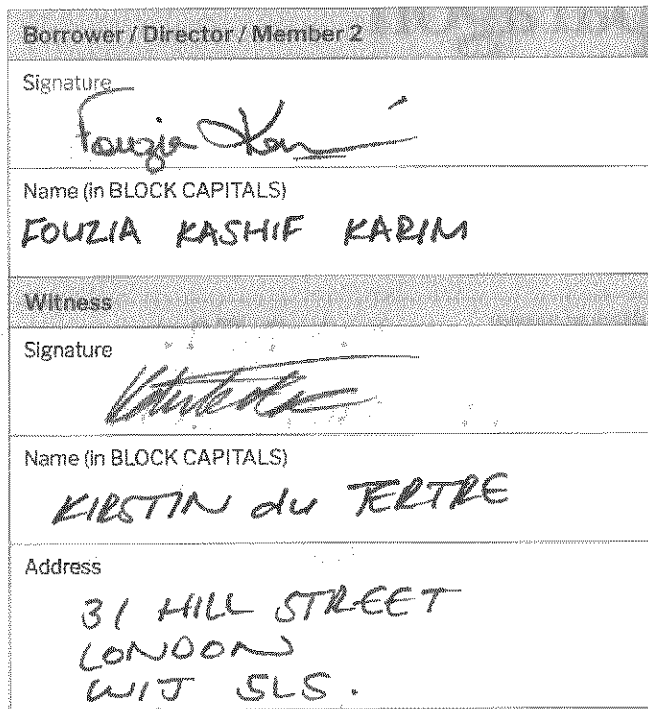 Borrower / Director / Member 2
Signature
Fouzia Kari
Name (in BLOCK CAPITALS)
FOUZIA KASHIF KARIM
Witness
Signature
Name (in BLOCK CAPITALS)
KIRSTIN du TERTRE
Address
31 HILL STREET
LONDON
W1J 5LS.